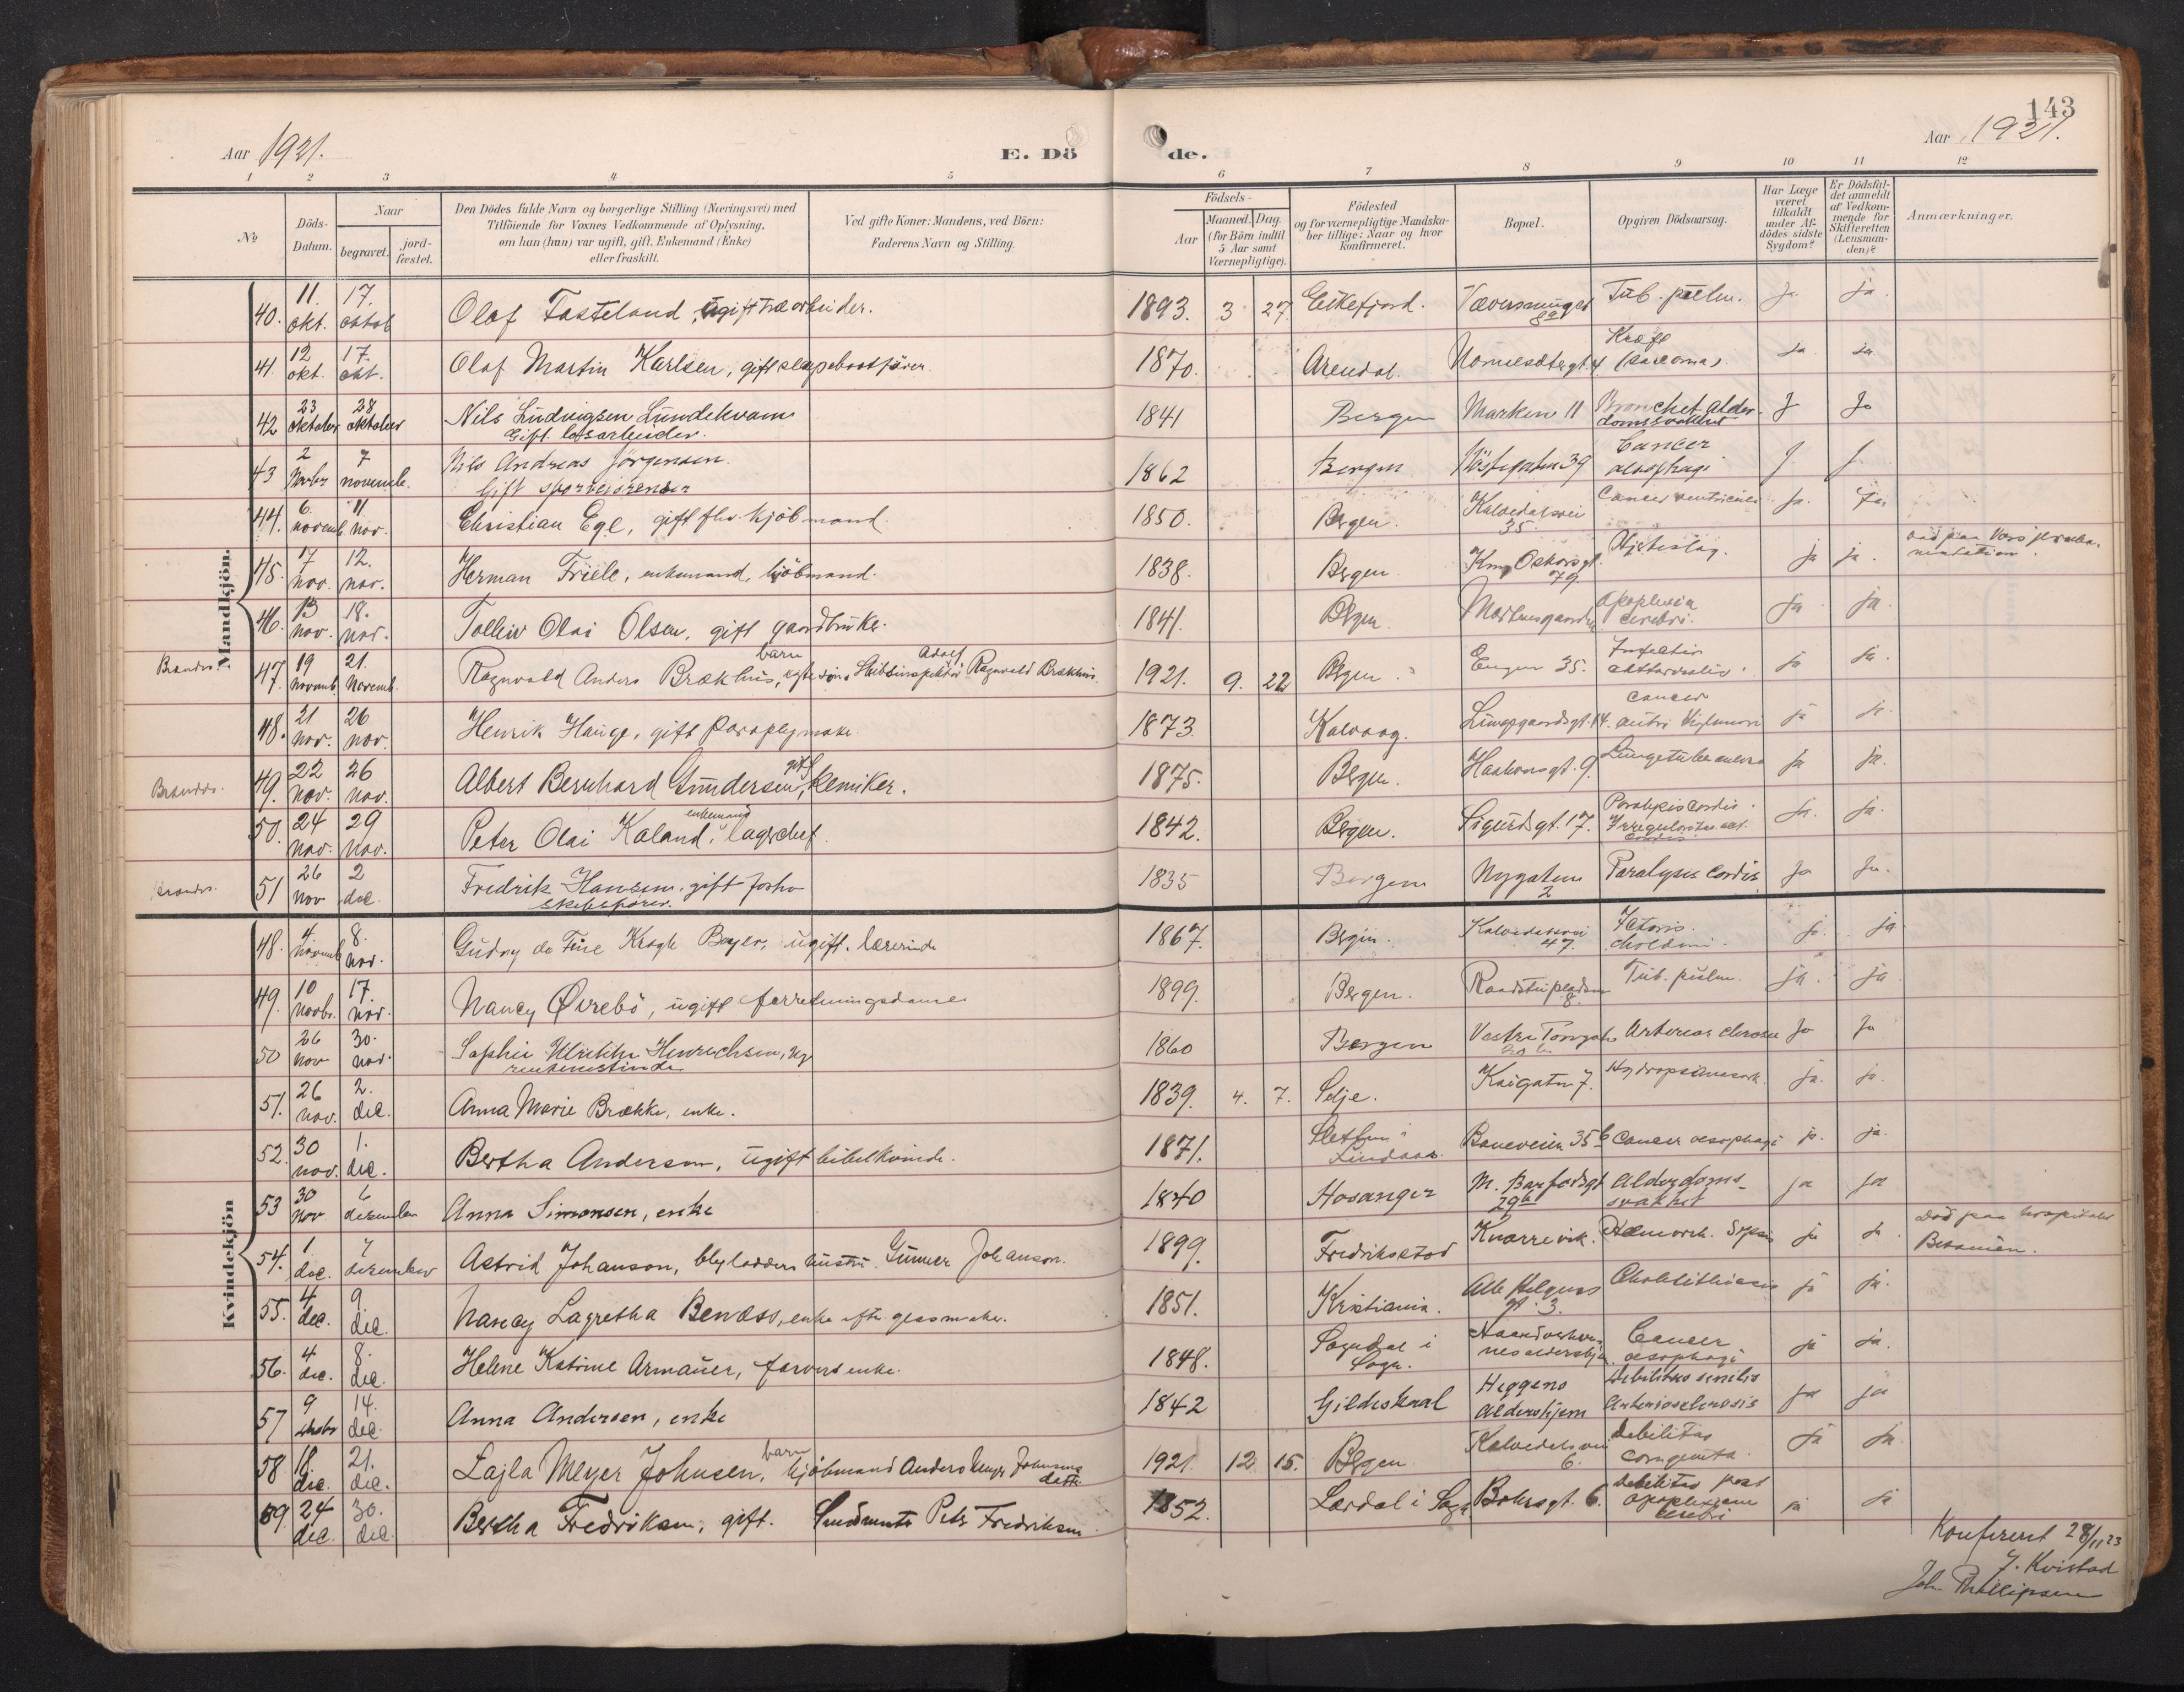 143
Aar 1921.
E. Dö
de.
Aar 1921.
1 2 3 4 5 6 7 8 9 10 11 12
№
Döds-Datum.
Naar
begravet.
jord-fæstet.
Den Dödes fulde Navn og borgerlige Stilling (Næringsvei) med
Tilföiende for Voxnes Vedkommende af Oplysning,
om han (hun) var ugift, gift, Enkemand (Enke)
eller fraskilt.
Ved gifte Koner: Mandens, ved Börn:
Faderens Navn og Stilling.
Födsels-
Aar
Maaned. Dag.
(for Börn indtil
5 Aar samt
Værnepligtige).
Födested
og for værnepligtige Mandska-
ber tillige: Naar og hvor
Konfirmeret.
Bopæl.
Opgiven Dödsaarsag.
Har Læge
været
tilkaldt
under Af-
dödes sidste
Sygdom?
Er Dödsfal-
det anmeldt
af Vedkom-
mende for
Skifteretten
(Lensman-
den)?
Anmærkninger.
Mandkjön.
40. 11. okt. 17. oktob Olaf Fasteland, ugift træarbeider. 1893. 3 27 Eikefjord. 8a Tub. pulm. ja. ja.
41. 12 okt. 17. okt. Olaf Martin Karlsen, gift slæpebaatförer. 1870. Arendal. 4 Kræft (sarcoma). ja. ja.
42 23 oktober 28 oktober Nils Ludvigsen Lundekvam
Gift. losarbeider. 1841 Bergen Marken 11 Bronchit alder-
domssvakhet J Ja
43 2 Novbr 7 novemb. Nils Andreas Jörgensen.
Gift 1862 Bergen Nöstegaten 39 Cancer
oesophagi J J
44. 6. novemb. 11. nov. Christian Ege, gift fhv. kjöbmand. 1850. Bergen. Kalvedalsvei
35. Cancer ventriculi ja. ja.
45. 7 nov. 12. nov. Herman Friele, enkemand, kjöbmand. 1838. Bergen Kong Oskarsgt.
79. Hjerteslag. ja ja. död paa Voss
46. 13 nov. 18. nov. Tolleiv Olai Olsen, gift gaardbruker. 1841. Bergen. Apoplexia
cerebri. ja. ja.
Brændes. 47. 19 novemb. 21. Novemb. Ragnvald Anders Brækhus, barn, Skibsinspektör Adolf Ragnvald Brækhus. 1921. 9. 22 Bergen. Engen 35. ja ja.
48. 21 nov. 26 nov. Henrik Hauge, gift paraplymaker. 1873. Kalvaag. Lungegaardsgt. 14. cancer ja ja.
Brændes. 49. 22 nov. 26 nov. Albert Bernhard Gundersen, gift kemiker. 1875. Bergen. Haakonsgt. 9. ja ja.
50. 24 nov. 29 nov. Peter Olai Kaland, enkemand lagerchef. 1842. Bergen. Sigurdsgt. 17. Paralysis cordis. ja. ja.
Brændes. 51 26 nov 2 dec. Fredrik Hansen, gift forhv
skibsförer. 1835 Bergen Nygaten
2 Paralysis cordis Ja Ja.
Kvindekjön
48. 4 novemb 8. nov. Gudny de Fine Krogh Beyer, ugift. lærerinde 1867. Bergen. Kalvedalsvei
47. ja. ja
49. 10 novbr. 17. nov. Nancy Øvrebö, ugift forretningsdame 1899. Bergen. Raadstupladsen
8. Tub. pulm. ja. ja
50 26 nov 30. nov. Sophie Ulrikke Henrichsen, ug
rentenistinde 1860 Bergen Vestre Torvgate
20 b Ja Ja
51. 26 nov. 2. dec. Anna Marie Brække, enke. 1839. 4. 7. Selje. Kaigaten 7. ja. ja.
52. 30 nov. 1. dec. Bertha Andersen, ugift bibelkvinde. 1871. Sletten i
Lindaas. Baneveien 35b Cancer oesophagi ja. ja.
53 30 nov 6 desember Anna Simonsen, enke 1840 Hosanger M. Barfodsgt
29a Alderdoms-
svakhet ja ja
54. 1 dec. 7 desember Astrid Johanson, hustru. Gunner Johanson. 1899. Fredrikstad Knarrevik. ja ja Död paa hospitalet
Betanien.
55. 4 dec. 9. dec. Nancy Lagretha Benæss, enke efter glasmaker. 1851. Kristiania. Alle Helgens
gt. 3. Cholelithiasis ja ja.
56. 4 dec. 8. dec. Helene Katrine Armauer, farvers enke. 1848. Sogndal i
Sogn. Cancer
oesophagi ja ja.
57 9 decbr 14. dec. Anna Andersen, enke 1842 Gildeskaal Heggens
aldershjem Debilitas senilis
Arteriosclerosis ja ja
58 18 dec. 21. dec. Lajla Meyer Johnsen, barn kjöbmand Anders Meyer Johnsens
dattr 1921. 12 15. Bergen Kalvedalsvei
6. Debilitas
congenita ja ja.
59. 24 dec. 30. dec. Bertha Fredriksen, gift. Peter Fredriksen 1852. Lærdal i Sogn Bohrsgt. 6. Debilitas post
apoplexiam
cerebri ja ja
Konferert 28/11 23
J. Kvistad
Joh. Phillipsen